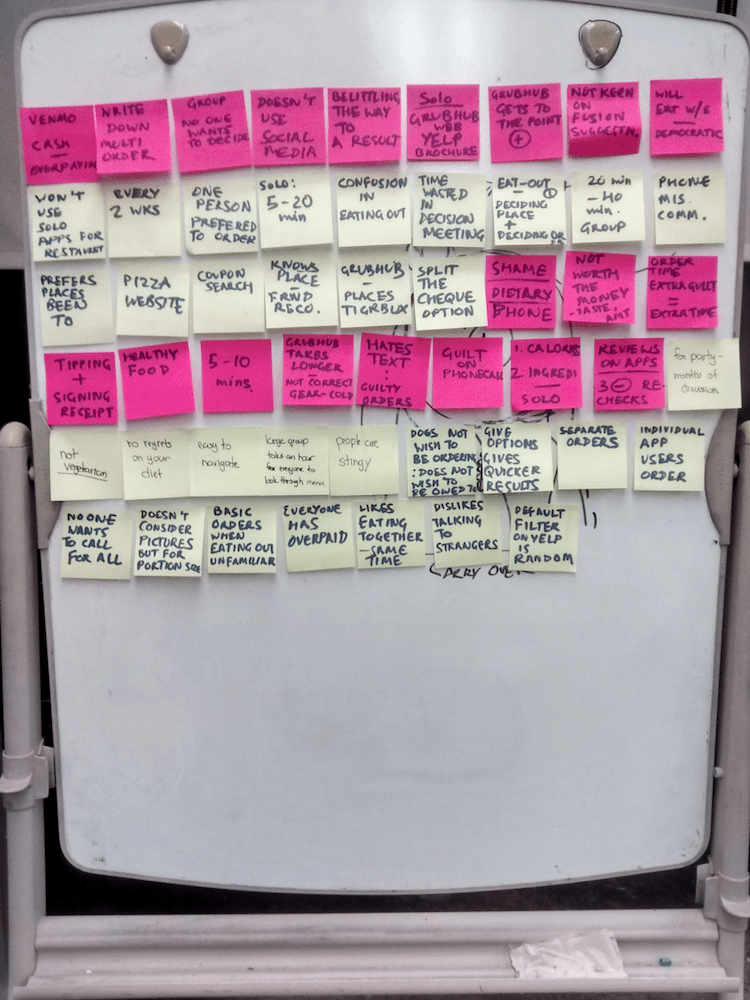 VENMO
CASH
—
OVERPAYING
WRITE
DOWN
MULTI
ORDER
GROUP
NO ONE
WANTS
TO DECIDE
DOESN'T
USE
SOCIAL
MEDIA
BELITTLING
THE WAY
TO
A RESULT
SOLO
GRUBHUB
WEB
YELP
BROCHURE
GRUBHUB
GETS TO
THE POINT
+
NOT KEEN
ON
FUSION
SUGGESTN.
WILL
EAT W/E
—
DEMOCRATIC
WON'T
USE
SOLO
APPS FOR
RESTAURET
EVERY
2 WKS
ONE
PERSON
PREFERRED
TO ORDER
SOLO:
5-20
min
CONFUSION
IN
EATING OUT
TIME
WASTED IN
DECISION
MEETING
EAT-OUT
—
DECIDING
PLACE
+
DECIDING
20 min
- 40
min.
GROUP
PHONE
MIS.
COMM.
PREFERS
PLACES
BEEN
TO
PIZZA
WEBSITE
COUPON
SEARCH
KNOWS
PLACE
-
FRND
RECO.
GRUBHUB
—
PLACES
SPLIT
THE
CHEQUE
OPTION
SHAME
DIETARY
PHONE
NOT
WORTH
THE
MONEY
-TASTE, AMT
ORDER
TIME
EXTRA GUILT
=
EXTRA TIME
TIPPING
+
SIGNING
RECEIPT
HEALTHY
FOOD
5-10
mins.
GRUBHUB
TAKES
LONGER
—
NOT CORRECT
GEAR-COLD
HATES
TEXT
:
GUILTY
ORDERS
GUILT
ON
PHONECALL
1. CALORIES
2. INGREDI
—
SOLO
REVIEWS
ON APPS
3 - RE-
CHECKS
for party-
months of
discussion
not
vegetarian
no regrets
on your
diet
easy to
navigate
large group
takes an hour
for everyone to
look through menu
people are
stingy
DOES NOT
WISH TO
BE ORDERING
: DOES NOT
WISH TO
BE OWED TO
GIVE
OPTIONS
GIVES
QUICKER
RESULTS
SEPARATE
ORDERS
INDIVIDUAL
APP
USERS
ORDER
NO ONE
WANTS
TO CALL
FOR ALL
DOESN'T
CONSIDER
PICTURES
BUT FOR
PORTION SIZE
BASIC
ORDERS
WHEN
EATING OUT
UNFAMILIAR
EVERYONE
HAS
OVERPAID
LIKES
EATING
TOGETHER
-SAME
TIME
DISLIKES
TALKING
TO
STRANGERS
DEFAULT
FILTER
ON YELP
IS
RANDOM
CARRY OVER